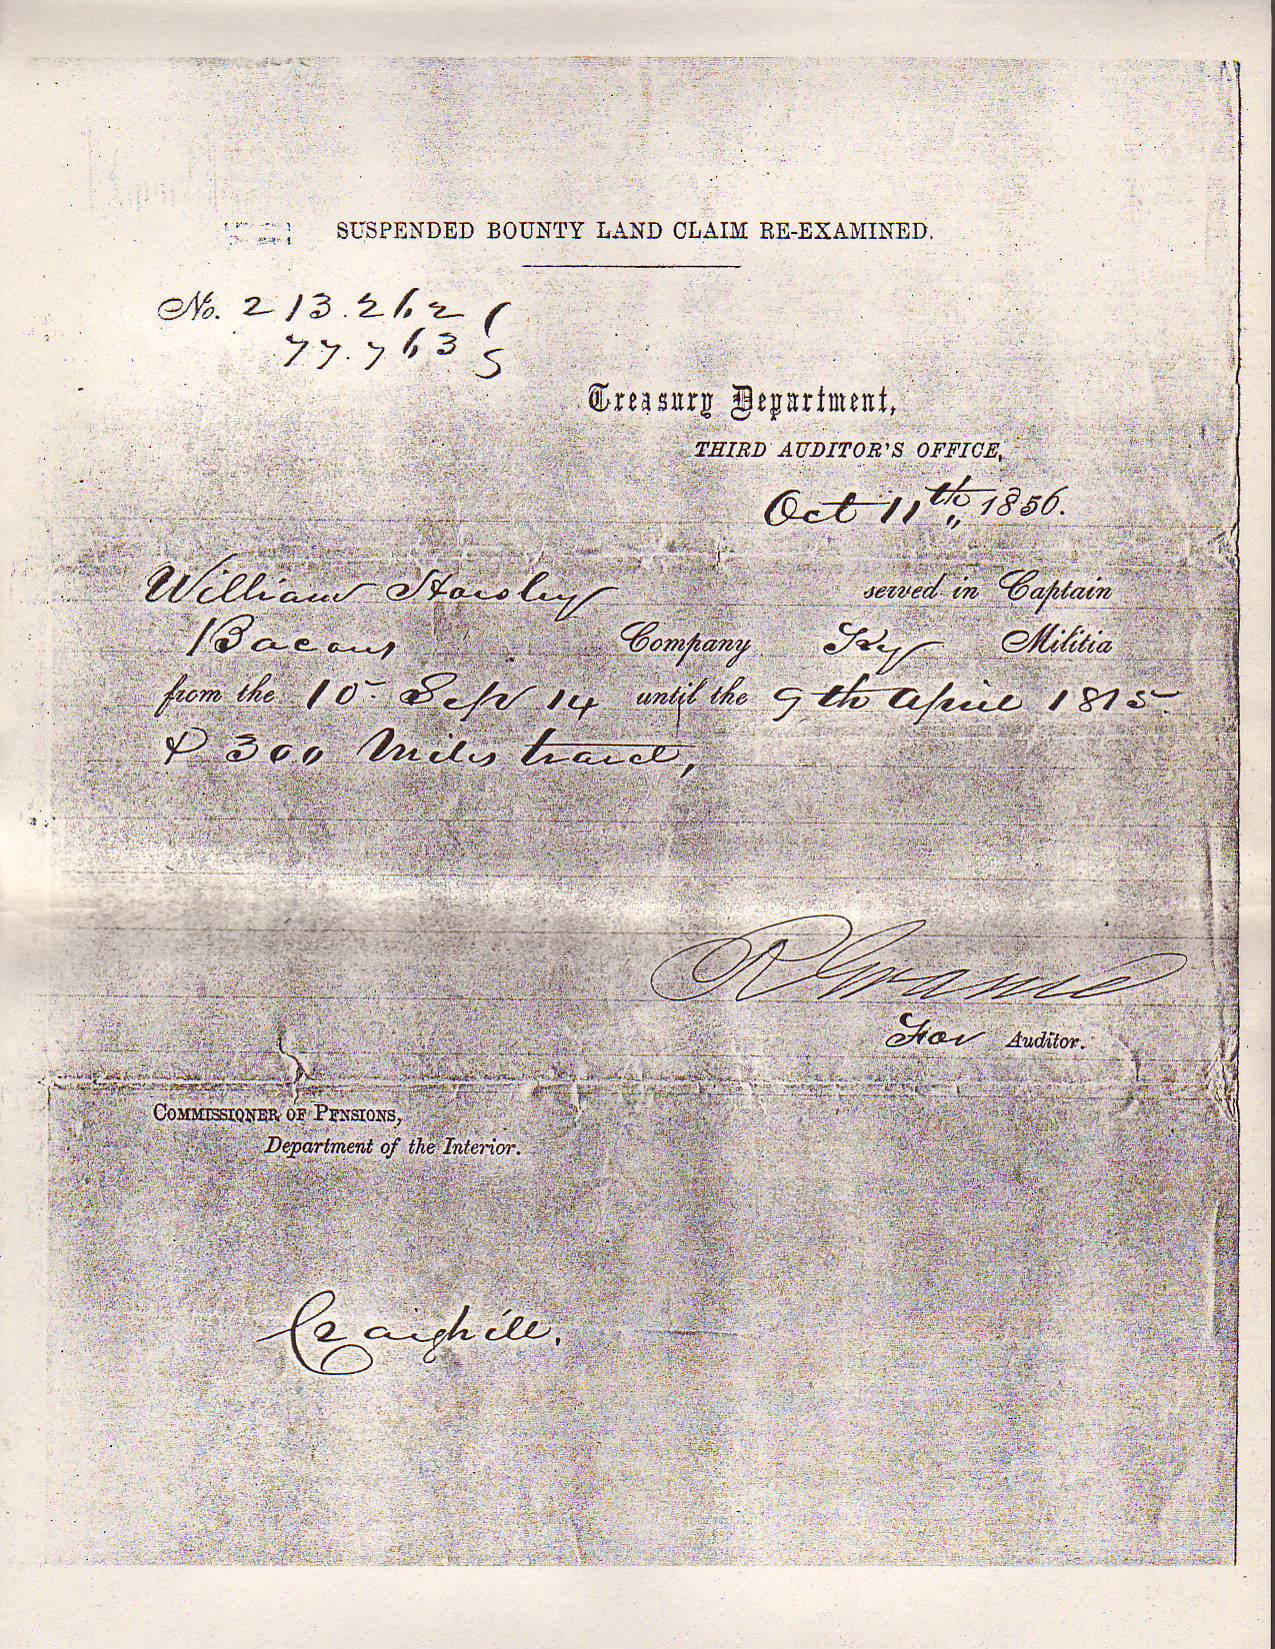 SUSPENDED BOUNTY LAND CLAIM RE-EXAMINED.
No. 213.262
77.763
Treasury Department,
THIRD AUDITOR'S OFFICE,
Oct 11th, 1856.
William served in Captain
Bacons Company Ky Militia
from the 10 Sept 14 until the 9th April 1815
& 300 Miles travel,
For Auditor.
COMMISSIONER OF PENSIONS,
Department of the Interior.
Craighill.